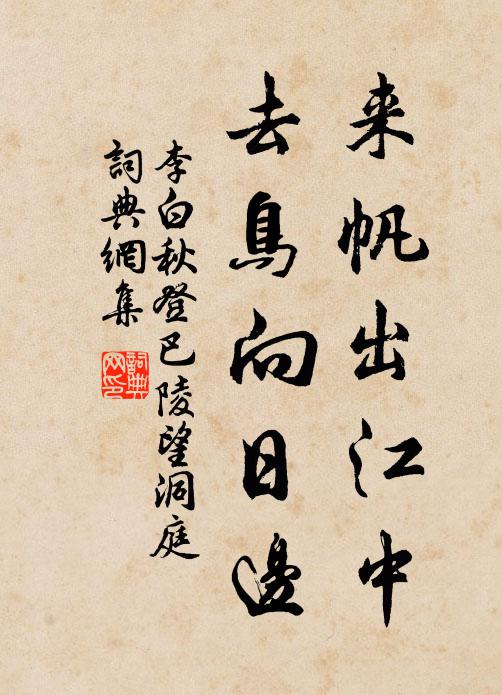 来帆出江中
去鳥向日邊
李白秋登巴陵望洞庭
詞典網集
詞典
网印